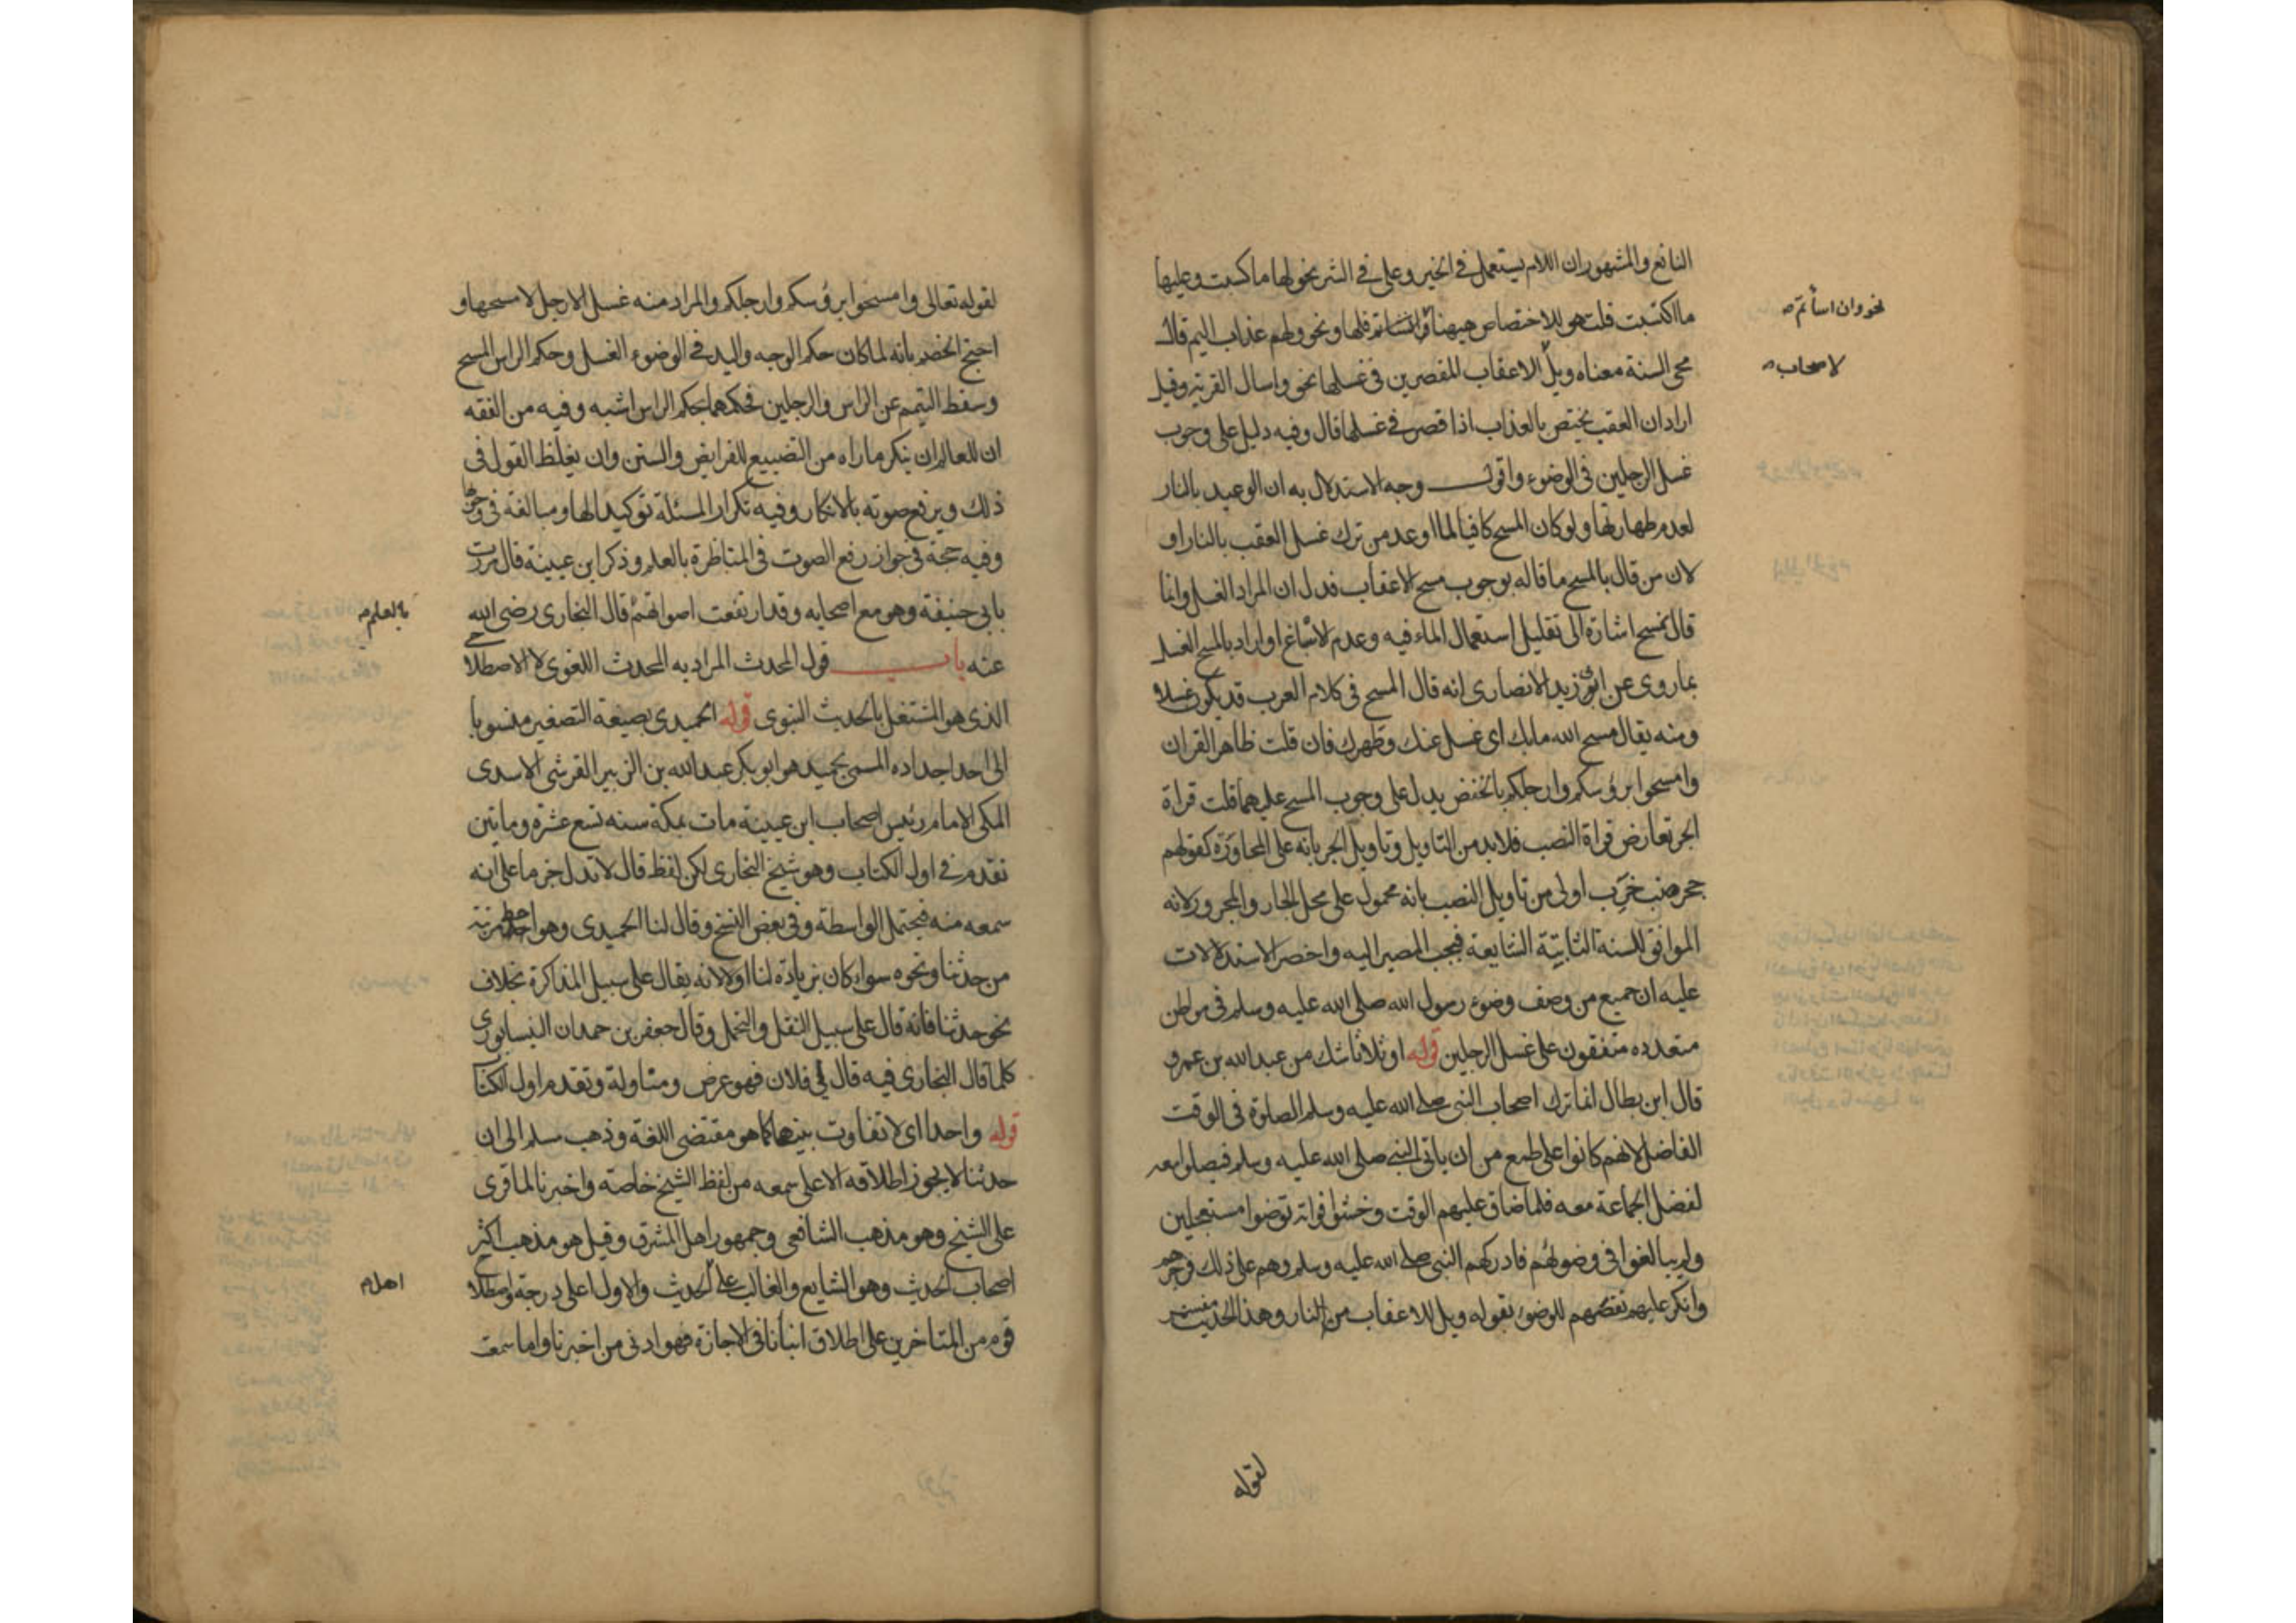 النافع والمشهور ان اللام يستعمل في الخير وعلى في الشر نحو لها ما كسبت وعليها
ما اكتسبت قلت هو للاختصاص ههنا فلها ونحو ولهم عذاب اليم قال
نحو وان اسأتم
محي السنة معناه ويل الاعقاب المقصرين في غسلها نحو واسال القرية وقيل
لاصحاب
اراد ان العقب يختص بالعذاب اذا قصر في غسلها قال وفيه دليل على وجوب
غسل الرجلين في الوضوء واقول وجه الاستدلال به ان الوعيد بالنار
لعدم طهارتها ولو كان المسح كافيا لما اوعد من ترك غسل العقب بالنار او
لان من قال بالمسح ما قاله بوجوب مسح الاعقاب فدل ان المراد الغسل وانما
قال نمسح اشارة الى تقليل استعمال الماء فيه وعدم الاسباغ او اراد بالمسح الغسل
بما روى عن ابي زيد الانصارى انه قال المسح في كلام العرب قد يكون غسلا
ومنه يقال مسح الله ما بك اى غسل عنك وطهرك فان قلت ظاهر القران
وامسحوا برؤسكم وارجلكم بالخفض يدل على وجوب المسح عليهما قلت قراة
الجر تعارض قراة النصب فلا بد من التاويل وتاويل الجر بانه على المجاورة كقولهم
جحر ضب خرب اولى من تاويل النصب بانه محمول على محل الجار والمجرور لانه
الموافق للسنة الثابتة الشايعة فيجب المصير اليه واخصر الاستدلالات
عليه ان جميع من وصف وضوء رسول الله صلى الله عليه وسلم في مواطن
متعدده متفقون على غسل الرجلين قوله او ثلاثا شك من عبد الله بن عمرو
قال ابن بطال انما ترك اصحاب النبي صلى الله عليه وسلم الصلوة في الوقت
الفاضل لانهم كانوا على طمع من ان ياتي النبي صلى الله عليه وسلم فيصلوا معه
لفضل الجماعة معه فلما ضاق عليهم الوقت وخشوا فواته توضوا مستعجلين
ولم يبالغوا في وضوئهم فادركهم النبي صلى الله عليه وسلم وهم على ذلك فزجرهم
وانكر عليهم نقصهم للوضوء بقوله ويل للاعقاب من النار وهذا الحديث مفسر
لقوله
لقوله تعالى وامسحوا برؤسكم وارجلكم والمراد منه غسل الارجل لا مسحها و
احتج الخصم بانه لما كان حكم الوجه واليد في الوضوء الغسل وحكم الراس المسح
وسقط التيمم عن الراس والرجلين فحكمهما بحكم الراس اشبه وفيه من الفقه
ان للعالم ان ينكر ما راه من التضييع للفرايض والسنن وان يغلظ القول في
ذلك ويرفع صوته بالانكار وفيه تكرار المسئلة توكيدا لها ومبالغة في وجوبها
وفيه حجة في جواز رفع الصوت في المناظرة بالعلم وذكر ابن عيينة قال مررت
بابي حنيفة وهو مع اصحابه وقد ارتفعت اصواتهم قال البخارى رضى الله
بالعلم
عنه باب قول المحدث المراد به المحدث اللغوى لا الاصطلاحي
الذى هو المشتغل بالحديث النبوى قوله الحميدى بصيغة التصغير منسوبا
الى احد اجداده المسمى بحميد هو ابو بكر عبد الله بن الزبير القرشى الاسدى
المكى الامام رئيس اصحاب ابن عيينة مات بمكة سنه تسع عشرة وماتين
تقدم في اول الكتاب وهو شيخ البخارى لكن لفظ قال لا تدل جزما على انه
سمعه منه فيحتمل الواسطة وفي بعض النسخ وقال لنا الحميدى وهو احط مرتبة
من حدثنا ونحوه سواء كان بزيادة لنا او لا لانه يقال على سبيل المذاكرة بخلاف
نحو حدثنا فانه قال على سبيل النقل والتحمل وقال جعفر بن حمدان النيسابورى
كلما قال البخارى فيه قال لي فلان فهو عرض ومناولة وتقدم اول الكتا
قوله واحدا اى لا تفاوت بينهما كما هو مقتضى اللغة وذهب مسلم الى ان
حدثنا لا يجوز اطلاقه الا على سمعه من لفظ الشيخ خاصة واخبرنا لما قرى
على الشيخ وهو مذهب الشافعى وجمهور اهل المشرق وقيل هو مذهب اكثر
اصحاب الحديث وهو الشايع والغالب على الحديث والاول اعلى درجة واصطلا
اهل
قوم من المتاخرين على اطلاق انبأنا في الاجازة فهو ادنى من اخبرنا واما سمعت